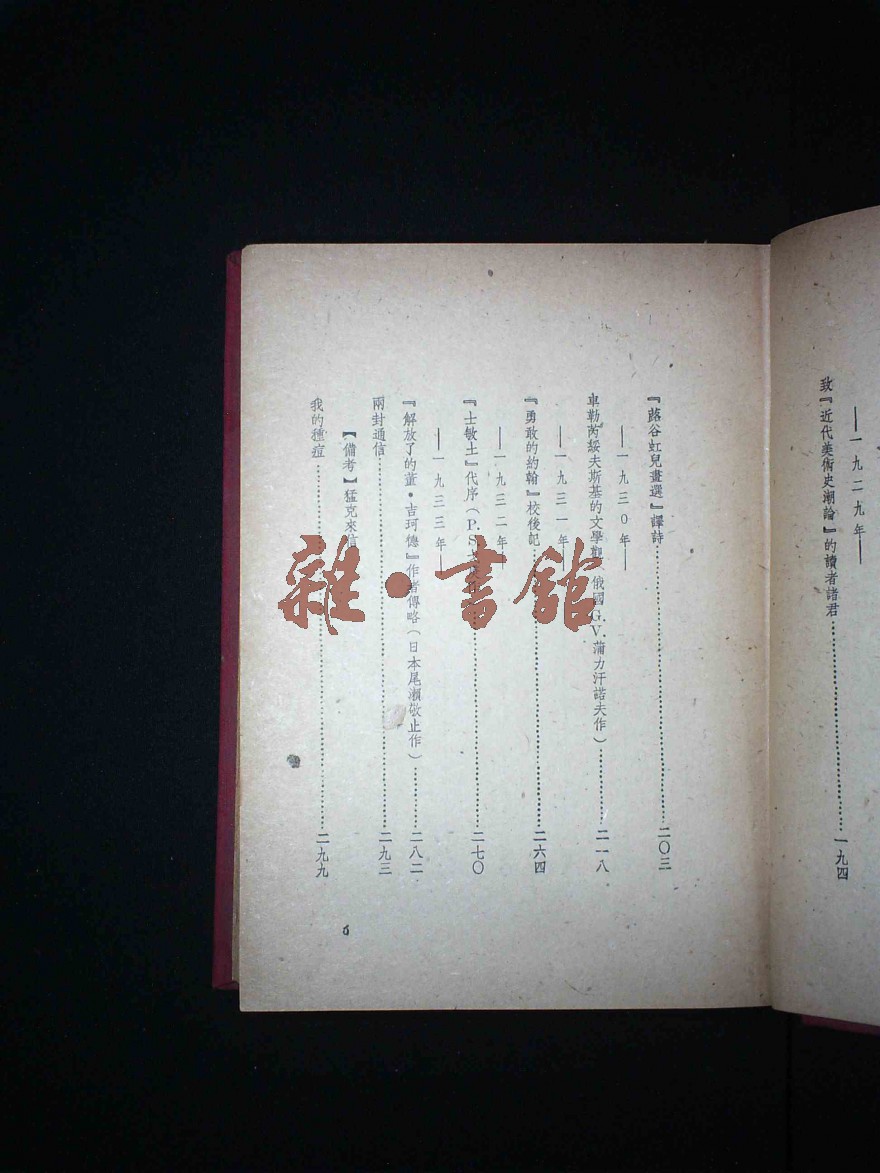 ——一九二九年——
致『近代美術史潮論』的讀者諸君……一九四
『蕗谷虹兒畫選』譯詩……二〇三
——一九三〇年——
車勒芮綏夫斯基的文學觀(俄國G.V.蒲力汗諾夫作)……二一八
——一九三一年——
『勇敢的約翰』校後記……二六四
——一九三二年——
『士敏土』代序(P.S.……二七〇
——一九三三年——
『解放了的董・吉珂德』作者傳略(日本尾瀨敬止作)……二八二
兩封通信……二九三
【備考】猛克來信
我的種痘……二九九
6
雜・書館